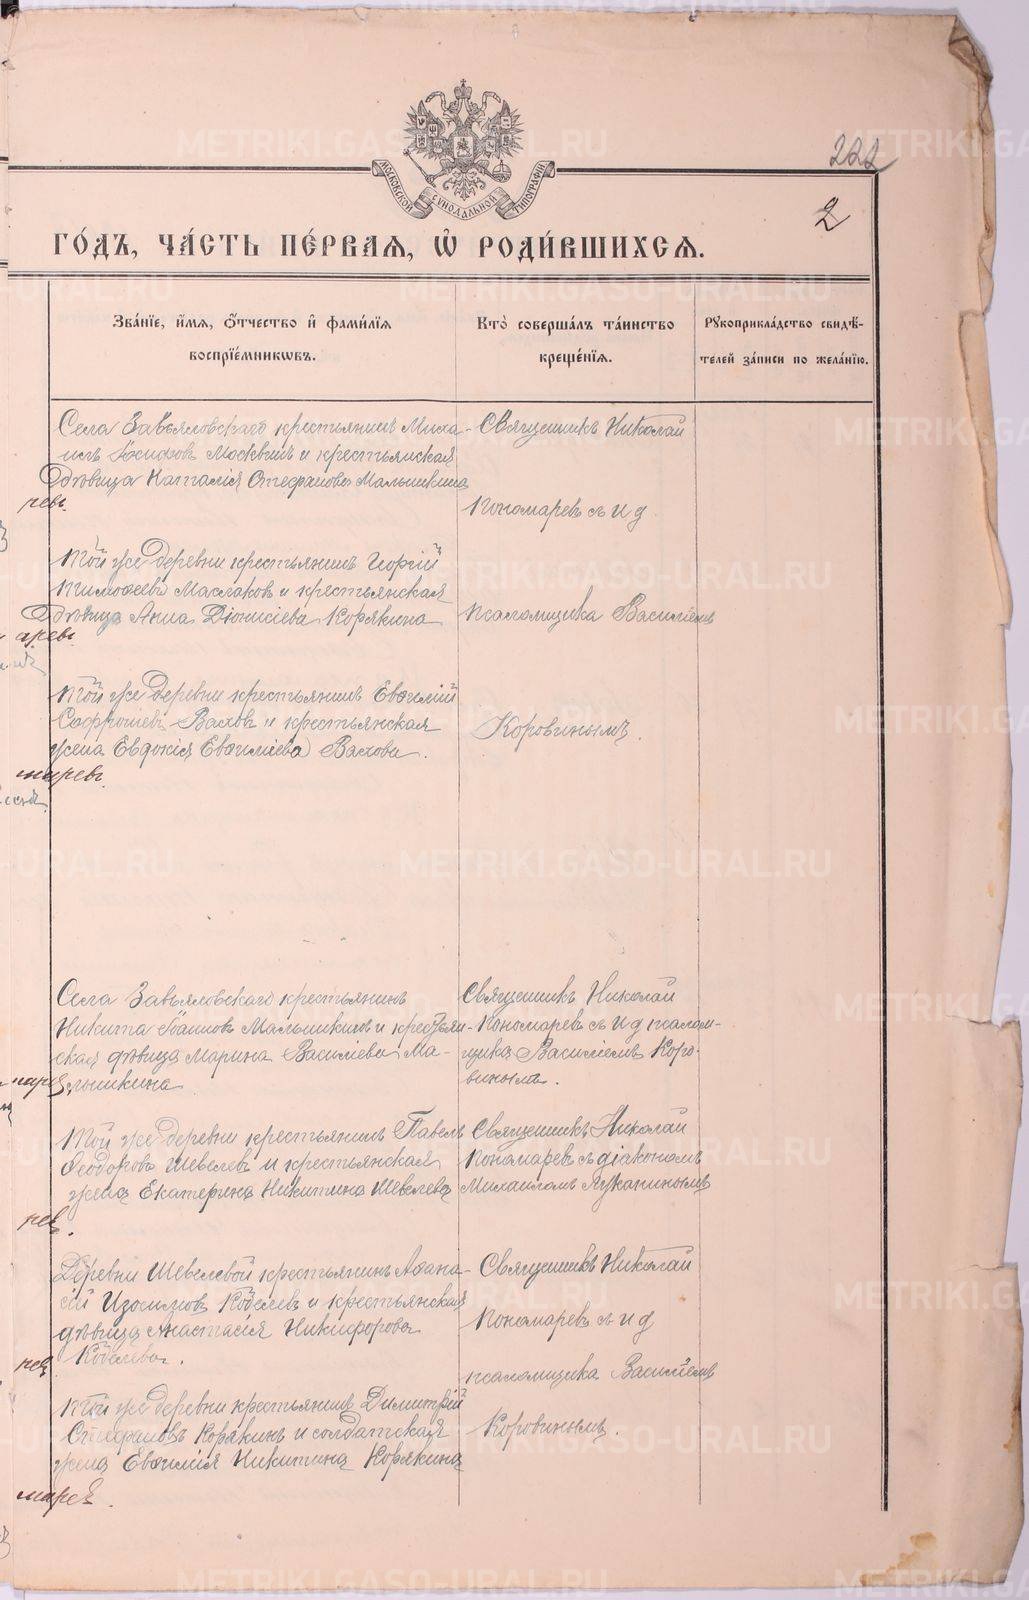 222
2
МОСКОВСКОЙ СѴНОДАЛЬНОЙ ТИПОГРАФІИ
ГО́ДЪ, ЧА́СТЬ ПЕ́РВАЯ, Ѽ РОДИ́ВШИХСЯ.
Зва́нїе, и́мя, ѻ҆́тчество и҆ фами́лїя
воспрїе́мникѡвъ.
Кто̀ соверша́лъ та́инство
креще́нїя.
Рꙋкоприкла́дство свидѣ́-
телей за́писи по жела́нїю.
Села Завьяловскаго крестьянинъ Миха-
илъ Іосифовъ Москвинъ и крестьянская
дѣвица Наталія Стефанова Малышкина
ревъ.
Священникъ Николай
Пономаревъ съ и д
псаломщика Василіемъ
Коровинымъ.
Той же деревни крестьянинъ Георгій
Тимоѳеевъ Маслаковъ и крестьянская
дѣвица Анна Діонисіева Корякина
аревъ
Той же деревни крестьянинъ Евѳимій
Софроніевъ Вахов и крестьянская
жена Евдокія Евѳиміева Вахова.
маревъ.
Села Завьяловскаго крестьянинъ
Никита Іоанновъ Малышкинъ и крестьян-
ская дѣвица Марина Василіева Ма-
лышкина
Священникъ Николай
Пономаревъ съ и д псалом-
щика Василіемъ Коро-
винымъ.
Той же деревни крестьянинъ Павелъ
Ѳеодоровъ Шевелевъ и крестьянская
жена Екатерина Никитина Шевелева
рев.
Священникъ Николай
Пономаревъ съ діакономъ
Михаиломъ Луканинымъ
Деревни Шевелевой крестьянинъ Аѳана-
сій Изосимовъ Кобелевъ и крестьянская
дѣвица Анастасія Никифорова
Кобелева.
рев
Священникъ Николай
Пономаревъ съ и д
псаломщика Василіемъ
Коровинымъ.
Той же деревни крестьянинъ Димитрій
Стефановъ Корякинъ и солдатская
жена Евѳимія Никитина Корякина
марев.
METRIKI.GASO-URAL.RU